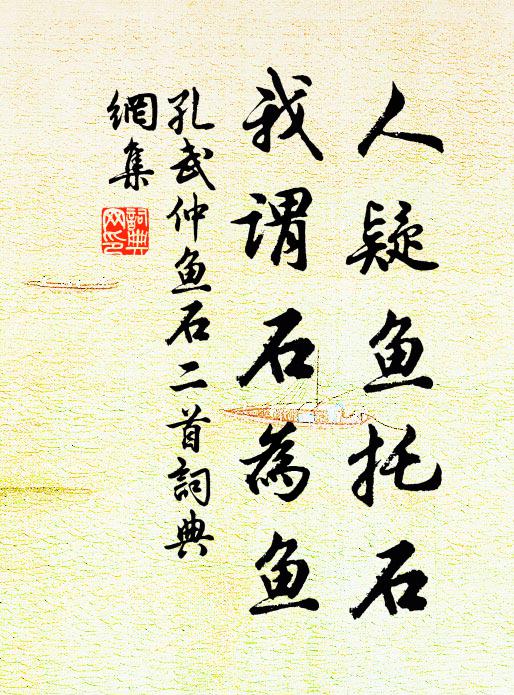 人疑鱼托石
我谓石為鱼
孔武仲鱼石二首詞典
網集
詞典
网印